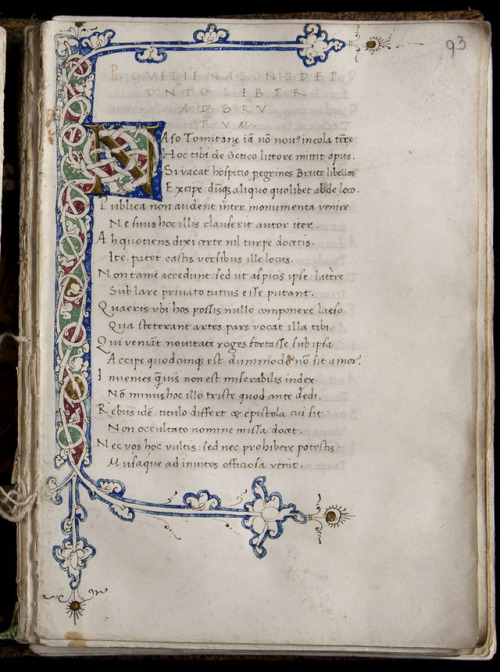 93
P. OMIDII NASONIS DE P
ONTO LIBER
AD BRV
TVM.
NAso Tomitane iā nō nouꝰ incola tr̄re
Hoc tibi de Getico littore mittit opus.
Si uacat hospitio pegrinos Brute libellos
Excipe: dūqꝫ aliquo quolibet abde loco.
Publica non audent inter monumenta uenire
Ne suus hoc illis clauserit autor iter.
Ah quotiens dixi certe nil turpe docetis.
Ite. patet castis uersibus ille locus.
Non tamē accedunt: sed ut aspicis ipse latēre
Sub lare priuato tutius esse putant.
Quaeris ubi hos possis nullo componere laeso
Qua steterant artes pars uocat illa tibi.
Qui ueniāt nouitate roges fortasse sub ipsa
Accipe quodcunqꝫ est dummodo nō sit amor.
Inuenies q̄uis non est miserabilis index
Nō minus hoc illo triste quod ante dedi.
Rebus idē: titulo differt & epistola cui sit
Non occultato nomine missa: docet.
Nec uos hoc uultis: sed nec prohibere potestis
Musaque ad inuitos officiosa uenit.